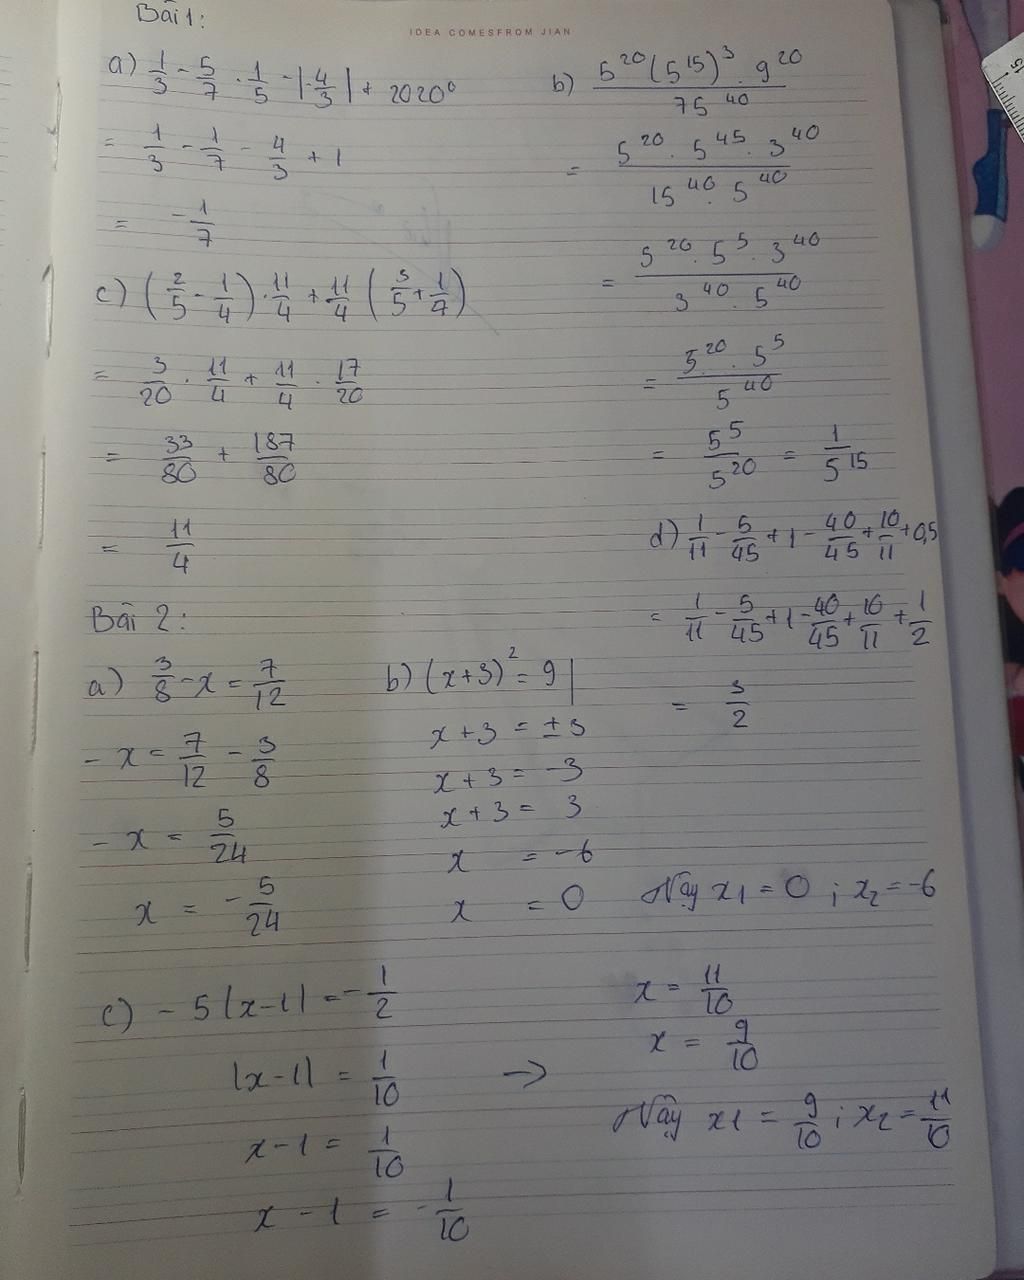 Bài 1:
IDEA COMESFROM JIAN
a) 1/3 - 5/7 . 1/5 - |-4/3| + 2020⁰
= 1/3 - 1/7 - 4/3 + 1
= -1/7
b) 5²⁰(5¹⁵)³ . 9²⁰ / 75⁴⁰
= 5²⁰ . 5⁴⁵ . 3⁴⁰ / 15⁴⁰ . 5⁴⁰
= 5²⁰ . 5⁵ . 3⁴⁰ / 3⁴⁰ . 5⁴⁰
= 5²⁰ . 5⁵ / 5⁴⁰
= 5⁵ / 5²⁰ = 1 / 5¹⁵
c) (2/5 - 1/4) . 11/4 + 11/4 (3/5 + 1/4)
= 3/20 . 11/4 + 11/4 . 17/20
= 33/80 + 187/80
= 11/4
d) 1/11 - 5/45 + 1 - 40/45 + 10/11 + 0,5
= 1/11 - 5/45 + 1 - 40/45 + 10/11 + 1/2
= 3/2
Bài 2:
a) 3/8 - x = 7/12
- x = 7/12 - 3/8
- x = 5/24
x = -5/24
b) (x+3)² = 9
x + 3 = ± 3
x + 3 = -3
x + 3 = 3
x = -6
x = 0
Vậy x1 = 0 ; x2 = -6
c) - 5|x-1| = -1/2
|x-1| = 1/10 →
x - 1 = 1/10
x - 1 = -1/10
x = 11/10
x = 9/10
Vậy x1 = 9/10 ; x2 = 11/10